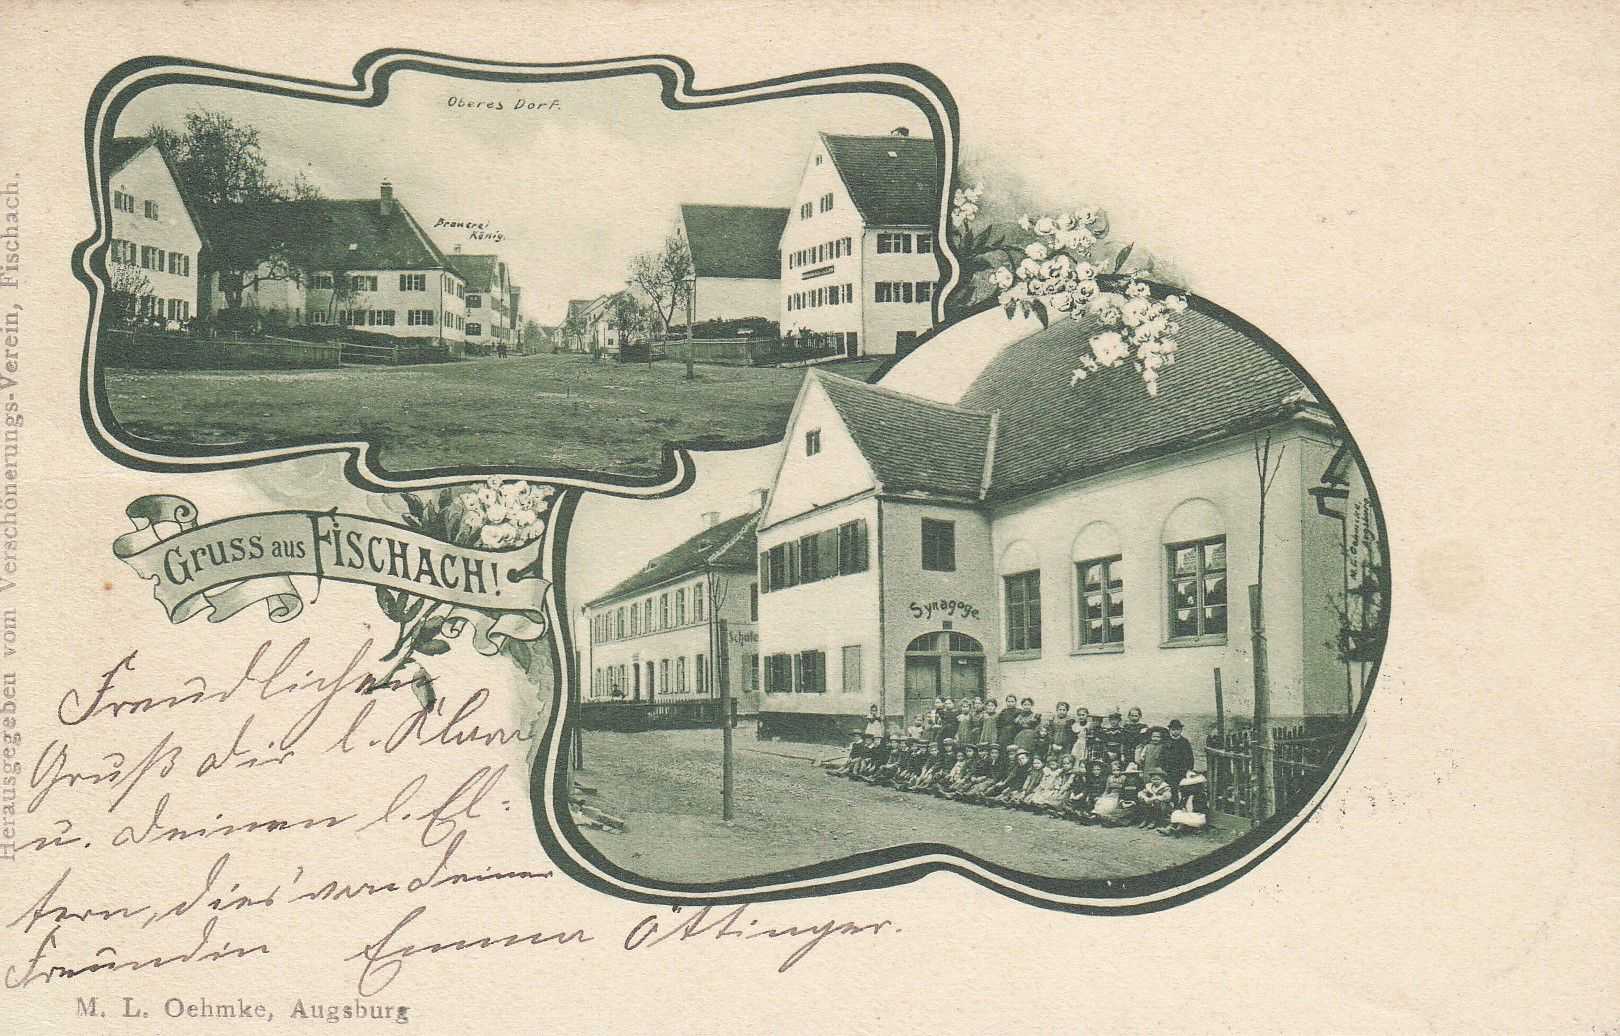 Oberes Dorf.
Brauerei
König.
Gruss aus FISCHACH!
Schule
Synagoge
M.L. Oehmke,
Augsburg
Freundlichen
Gruß dir l. Klara
u. deinen l. El-
tern, dies von deiner
Freundin Emma Öttinger.
M. L. Oehmke, Augsburg
Herausgegeben vom Verschönerungs-Verein, Fischach.